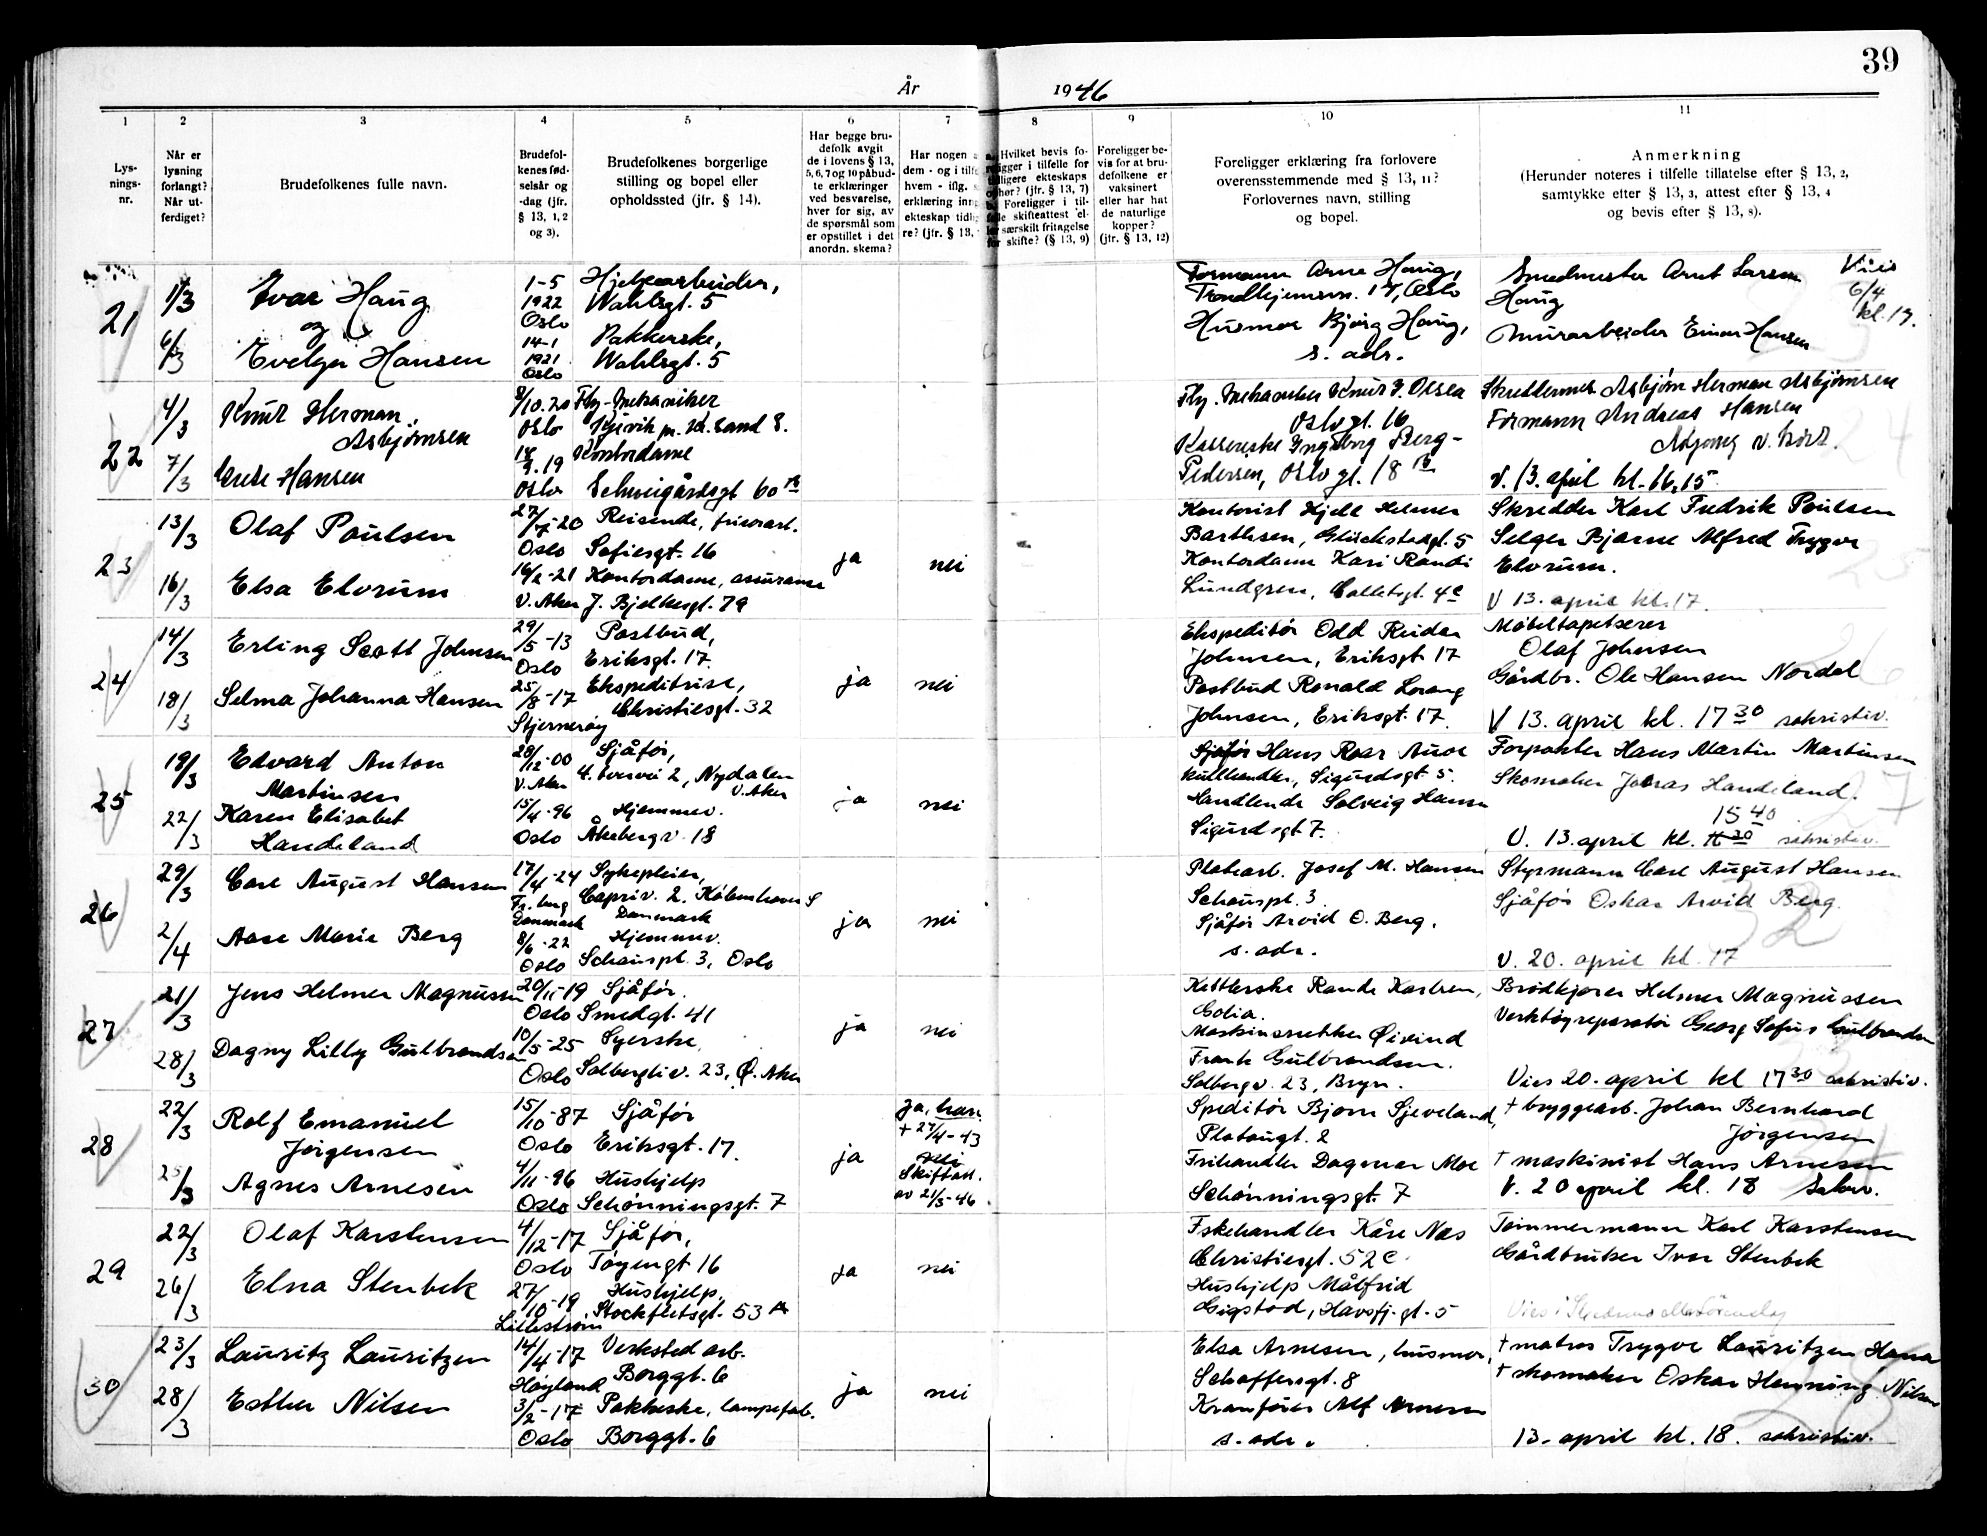 39
År 1946
1 2 3 4 5 6 7 8 9 10 11
Lys-
nings-
nr.
Når er
lysning
forlangt?
Når ut-
ferdiget?
Brudefolkenes fulle navn.
Brudefol-
kenes fød-
selsår og
-dag (jfr.
§ 13, 1, 2
og 3).
Brudefolkenes borgerlige
stilling og bopel eller
opholdssted (jfr. § 14).
Har begge bru-
defolk avgit
de i lovens § 13,
5, 6, 7 og 10 påbud-
te erklæringer
ved besvarelse,
hver for sig, av
de spørsmål som
er opstillet i det
anordn. skema?
Har nogen a
dem - og i tilfe
hvem - iflg. s
erklæring inng
ekteskap tidlig
re? (jfr. § 13,
Hvilket bevis fo-
religger i tilfelle for
tidligere ekteskaps
ophør? (jfr. § 13, 7)
Foreligger i til-
felle skifteattest el-
ler særskilt fritagelse
for skifte? (§ 13, 9)
Foreligger be-
vis for at bru-
defolkene er
vaksinert
eller har hat
de naturlige
kopper?
(jfr. § 13, 12)
Foreligger erklæring fra forlovere
overensstemmende med § 13, 11?
Forlovernes navn, stilling
og bopel.
Anmerkning
(Herunder noteres i tilfelle tillatelse efter § 13, 2,
samtykke efter § 13, 3, attest efter § 13, 4
og bevis efter § 13, 8).
21
1/3
6/3
Ivar Haug
og
Evelyn Hansen
1-5
1922
Oslo
14-1
1921
Oslo
Hjelpearbeider,
Wahlsgt. 5
Pakkerske,
Wahlsgt. 5
Formann Arne Haug,
Trondhjemsvn. 17, Oslo
Husmor Bjørg Haug,
s. adr.
Smedmester Arnt Larsen
Haug
Murarbeider Einar Hansen
Vies
6/4
kl. 17.
22
4/3
7/3
Knut Herman
Asbjørnsen
Grete Hansen
9/10.20
Oslo
18/9.19
Oslo
Fly-mekaniker
Kjevik pr. Kr.sand S.
Kontordame
Schweigårdsgt 60 B
Fly.mekaniker Knut J. Olsen
Oslogt. 16
Kassererske Ingeborg Berg-
Pedersen, Oslogt. 18 B
Skreddermes. Asbjørn Herman Asbjørnsen
Formann Andreas Hansen
V. 13. april kl. 16,15
23
13/3
16/3
Olaf Poulsen
Elsa Elvrum
27/7-20
Oslo
16/2-21
V. Aker
Reisende, frisørart.
Sofiesgt. 16
Kontordame, assuranse
J. Bjelkesgt. 79
ja
nei
Kontorist Kjell Helmer
Barthsen, Glückstadgt. 5
Kontordame Kari Randi
Lundgren, Calletsgt. 4c
Skredder Karl Fredrik Poulsen
Selger Bjarne Alfred Trygve
Elvrum.
V 13. april kl. 17.
24
14/3
18/3
Erling Scott Johnsen
Selma Johanna Hansen
29/5-13
Oslo
25/8-17
Stjernerøy
Postbud,
Eriksgt. 17.
Ekspeditrise,
Christiesgt. 32
ja
nei
Ekspeditør Odd Reidar
Johnsen, Eriksgt 17
Postbud Ronald Lorang
Johnsen, Eriksgt. 17.
Møbeltapetserer
Olaf Johnsen
Gårdbr. Ole Hansen Nordal
V 13. april kl. 17 30 sakristiv.
25
19/3
22/3
Edvard Anton
Martinsen
Karen Elisabet
Handeland
28/12-00
V. Aker
15/4-96
Oslo
Sjåfør,
4. tverrvei 2, Nydalen
V. Aker
Hjemmev.
Åkebergv. 18
ja
nei
Sjåfør Hans Roar Aune
kullhandler, Sigurdsgt 5.
Handlende Solveig Hansen
Sigurdsgt 7.
Forpakter Hans Martin Martinsen
Skomaker Jonas Handeland.
15 40
V. 13. april kl. sakristiv.
26
29/3
2/4
Carl August Hansen
Aase Marie Berg
17/4-24
Fr.berg
Danmark
8/6-22
Oslo
Sykepleier,
Capriv. 2, Københavns S
Danmark
Hjemmev.
Schouspl. 3, Oslo
ja
nei
Platearb. Josef M. Hansen
Schouspl. 3
Sjåfør Arvid O. Berg.
s. adr.
Styrmann Carl August Hansen
Sjåfør Oskar Arvid Berg.
V. 20. april kl. 17
27
21/3
28/3
Jens Helmer Magnussen
Dagny Lilly Gulbrandsen
20/11-19
Oslo
10/5-25
Oslo
Sjåfør.
Smedgt. 41
Syerske
Solbergliv. 23, Ø. Aker
ja
nei
Kitlerske Rande Karlsen,
Maskinsetter Øivind
Frank Gulbrandsen.
Solbergv. 23, Bryn.
Brødkjører Helmer Magnussen
Verktøyreparatør Georg Sofus Gulbrandsen
Vies 20. april kl 17 30 sakristiv.
28
22/3
25/3
Rolf Emanuel
Jørgensen
Agnes Arnesen
15/10-87
Oslo
4/11-96
Oslo
Sjåfør
Eriksgt. 17.
Hushjelp
Schønningsgt. 7
ja
Ja, han
+ 27/4-43
nei
Skifteatt.
av 21/3-46
Speditør Bjørn Sjeveland,
Platougt. 2
Frihandler Dagmar Moe
Schønningsgt. 7
+ bryggearb. Johan Bernhard
Jørgensen
+ maskinist Hans Arnesen
V. 20 april kl. 18 Sakr.
29
22/3
26/3
Olaf Karstensen
Elna Stenbek
4/12-17
Oslo
27/10-19
Lillestrøm
Sjåfør,
Tøyengt 16
Hushjelp,
Stockfletsgt. 53 A
ja
nei
Fiskehandler Kåre Næs
Christiesgt. 52 c
Hushjelp Målfrid
Gigstad, Havsfj.gt. 5
Tømmermann Karl Karstensen
Gårdbruker Ivar Stenbek
Vies i
30
23/3
28/3
Lauritz Lauritzen
Esther Nilsen
14/4-17
Høyland
3/2-17
Oslo
Verksted arb.
Borggt. 6
Pakkeske, lampefab.
Borggt. 6
ja
nei
Elsa Arnesen, husmor,
Schaffersgt. 8
Kranfører Alf Arnesen
s. adr.
+ matros Trygve Lauritzen Hana
+ skomaker Oskar Henning Nilsen
13. april kl. 18. sakristiv.